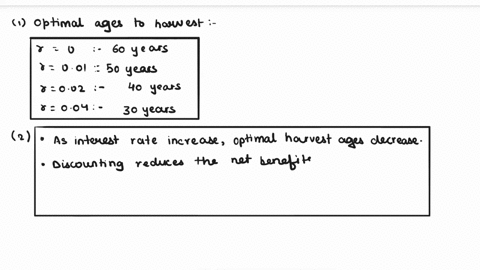 (1) Optimal ages to harvest :-
r = 0 :- 60 years
r = 0.01 :- 50 years
r = 0.02 :- 40 years
r = 0.04 :- 30 years
(2)
• As interest rate increase, optimal harvest ages decrease.
• Discounting reduces the net benefits